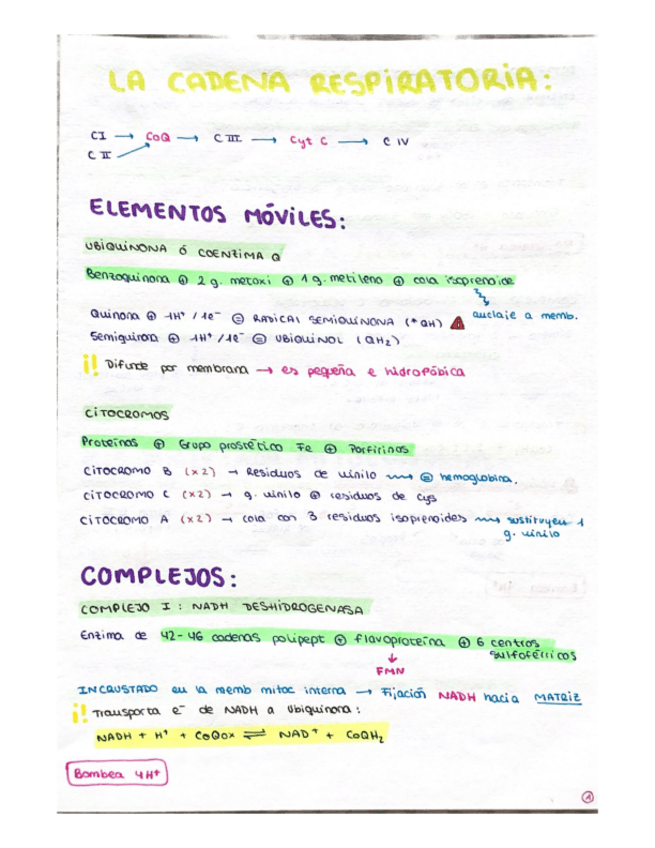 LA CADENA RESPIRATORIA:
CI → CoQ → C III → Cyt C → C IV
C II
ELEMENTOS MÓVILES:
UBIQUINONA Ó COENZIMA Q
Benzoquinona ⊕ 2 g. metoxi ⊕ 1 g. metileno ⊕ cola isoprenoide
anclaje a memb.
Quinona ⊕ 1H⁺ / 1e⁻ ⊜ RADICAL SEMIQUINONA (*QH)
Semiquinona ⊕ 1H⁺ / 1e⁻ ⊜ UBIQUINOL (QH₂)
¡! Difunde por membrana → es pequeña e hidrofóbica
CITOCROMOS
Proteínas ⊕ Grupo prostético Fe ⊕ Porfirinas
CITOCROMO B (x2) → Residuos de vinilo ⇝ ⊜ hemoglobina.
CITOCROMO C (x2) → g. vinilo ⊕ residuos de cys
CITOCROMO A (x2) → cola con 3 residuos isoprenoides ⇝ sustituyen 1
g. vinilo
COMPLEJOS:
COMPLEJO I: NADH DESHIDROGENASA
Enzima de 42-46 cadenas polipept ⊕ flavoproteína ⊕ 6 centros
sulfoférricos
↓
FMN
INCRUSTADO en la memb mitoc interna → Fijación NADH hacia MATRIZ
¡! Transporta e⁻ de NADH a Ubiquinona:
NADH + H⁺ + CoQox ⇌ NAD⁺ + CoQH₂
Bombea 4H⁺
1